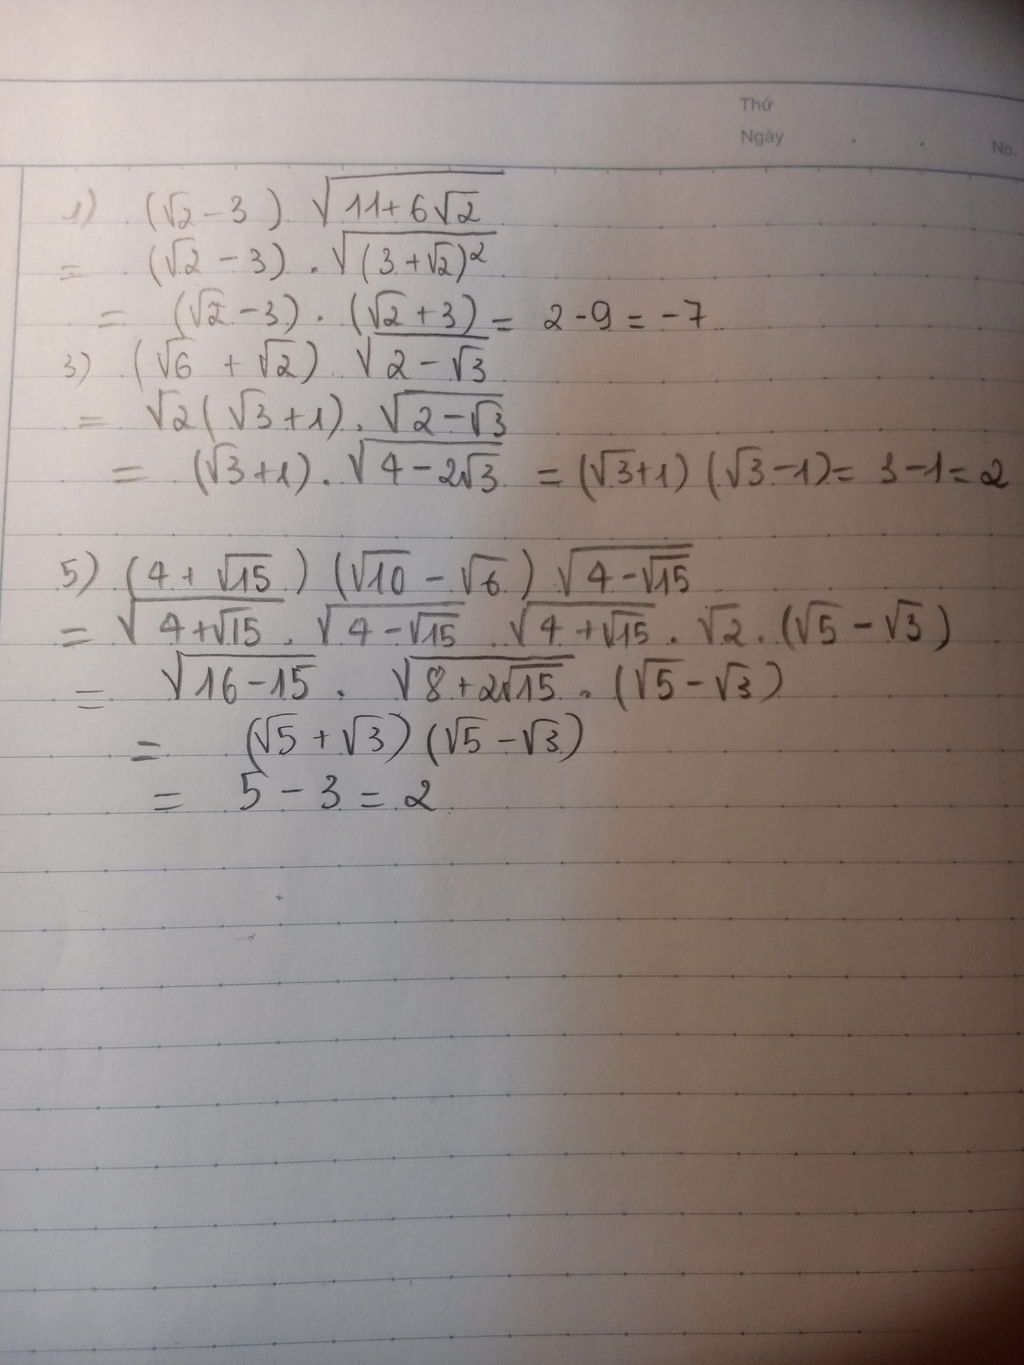 Thứ
Ngày
No.
1) (√2 - 3) √(11 + 6√2)
= (√2 - 3) . √((3 + √2)²)
= (√2 - 3) . (√2 + 3) = 2 - 9 = -7
3) (√6 + √2) . √(2 - √3)
= √2(√3 + 1) . √(2 - √3)
= (√3 + 1) . √(4 - 2√3) = (√3 + 1)(√3 - 1) = 3 - 1 = 2
5) (4 + √15)(√10 - √6) √(4 - √15)
= √(4 + √15) . √(4 - √15) . √(4 + √15) . √2 . (√5 - √3)
= √(16 - 15) . √(8 + 2√15) . (√5 - √3)
= (√5 + √3)(√5 - √3)
= 5 - 3 = 2